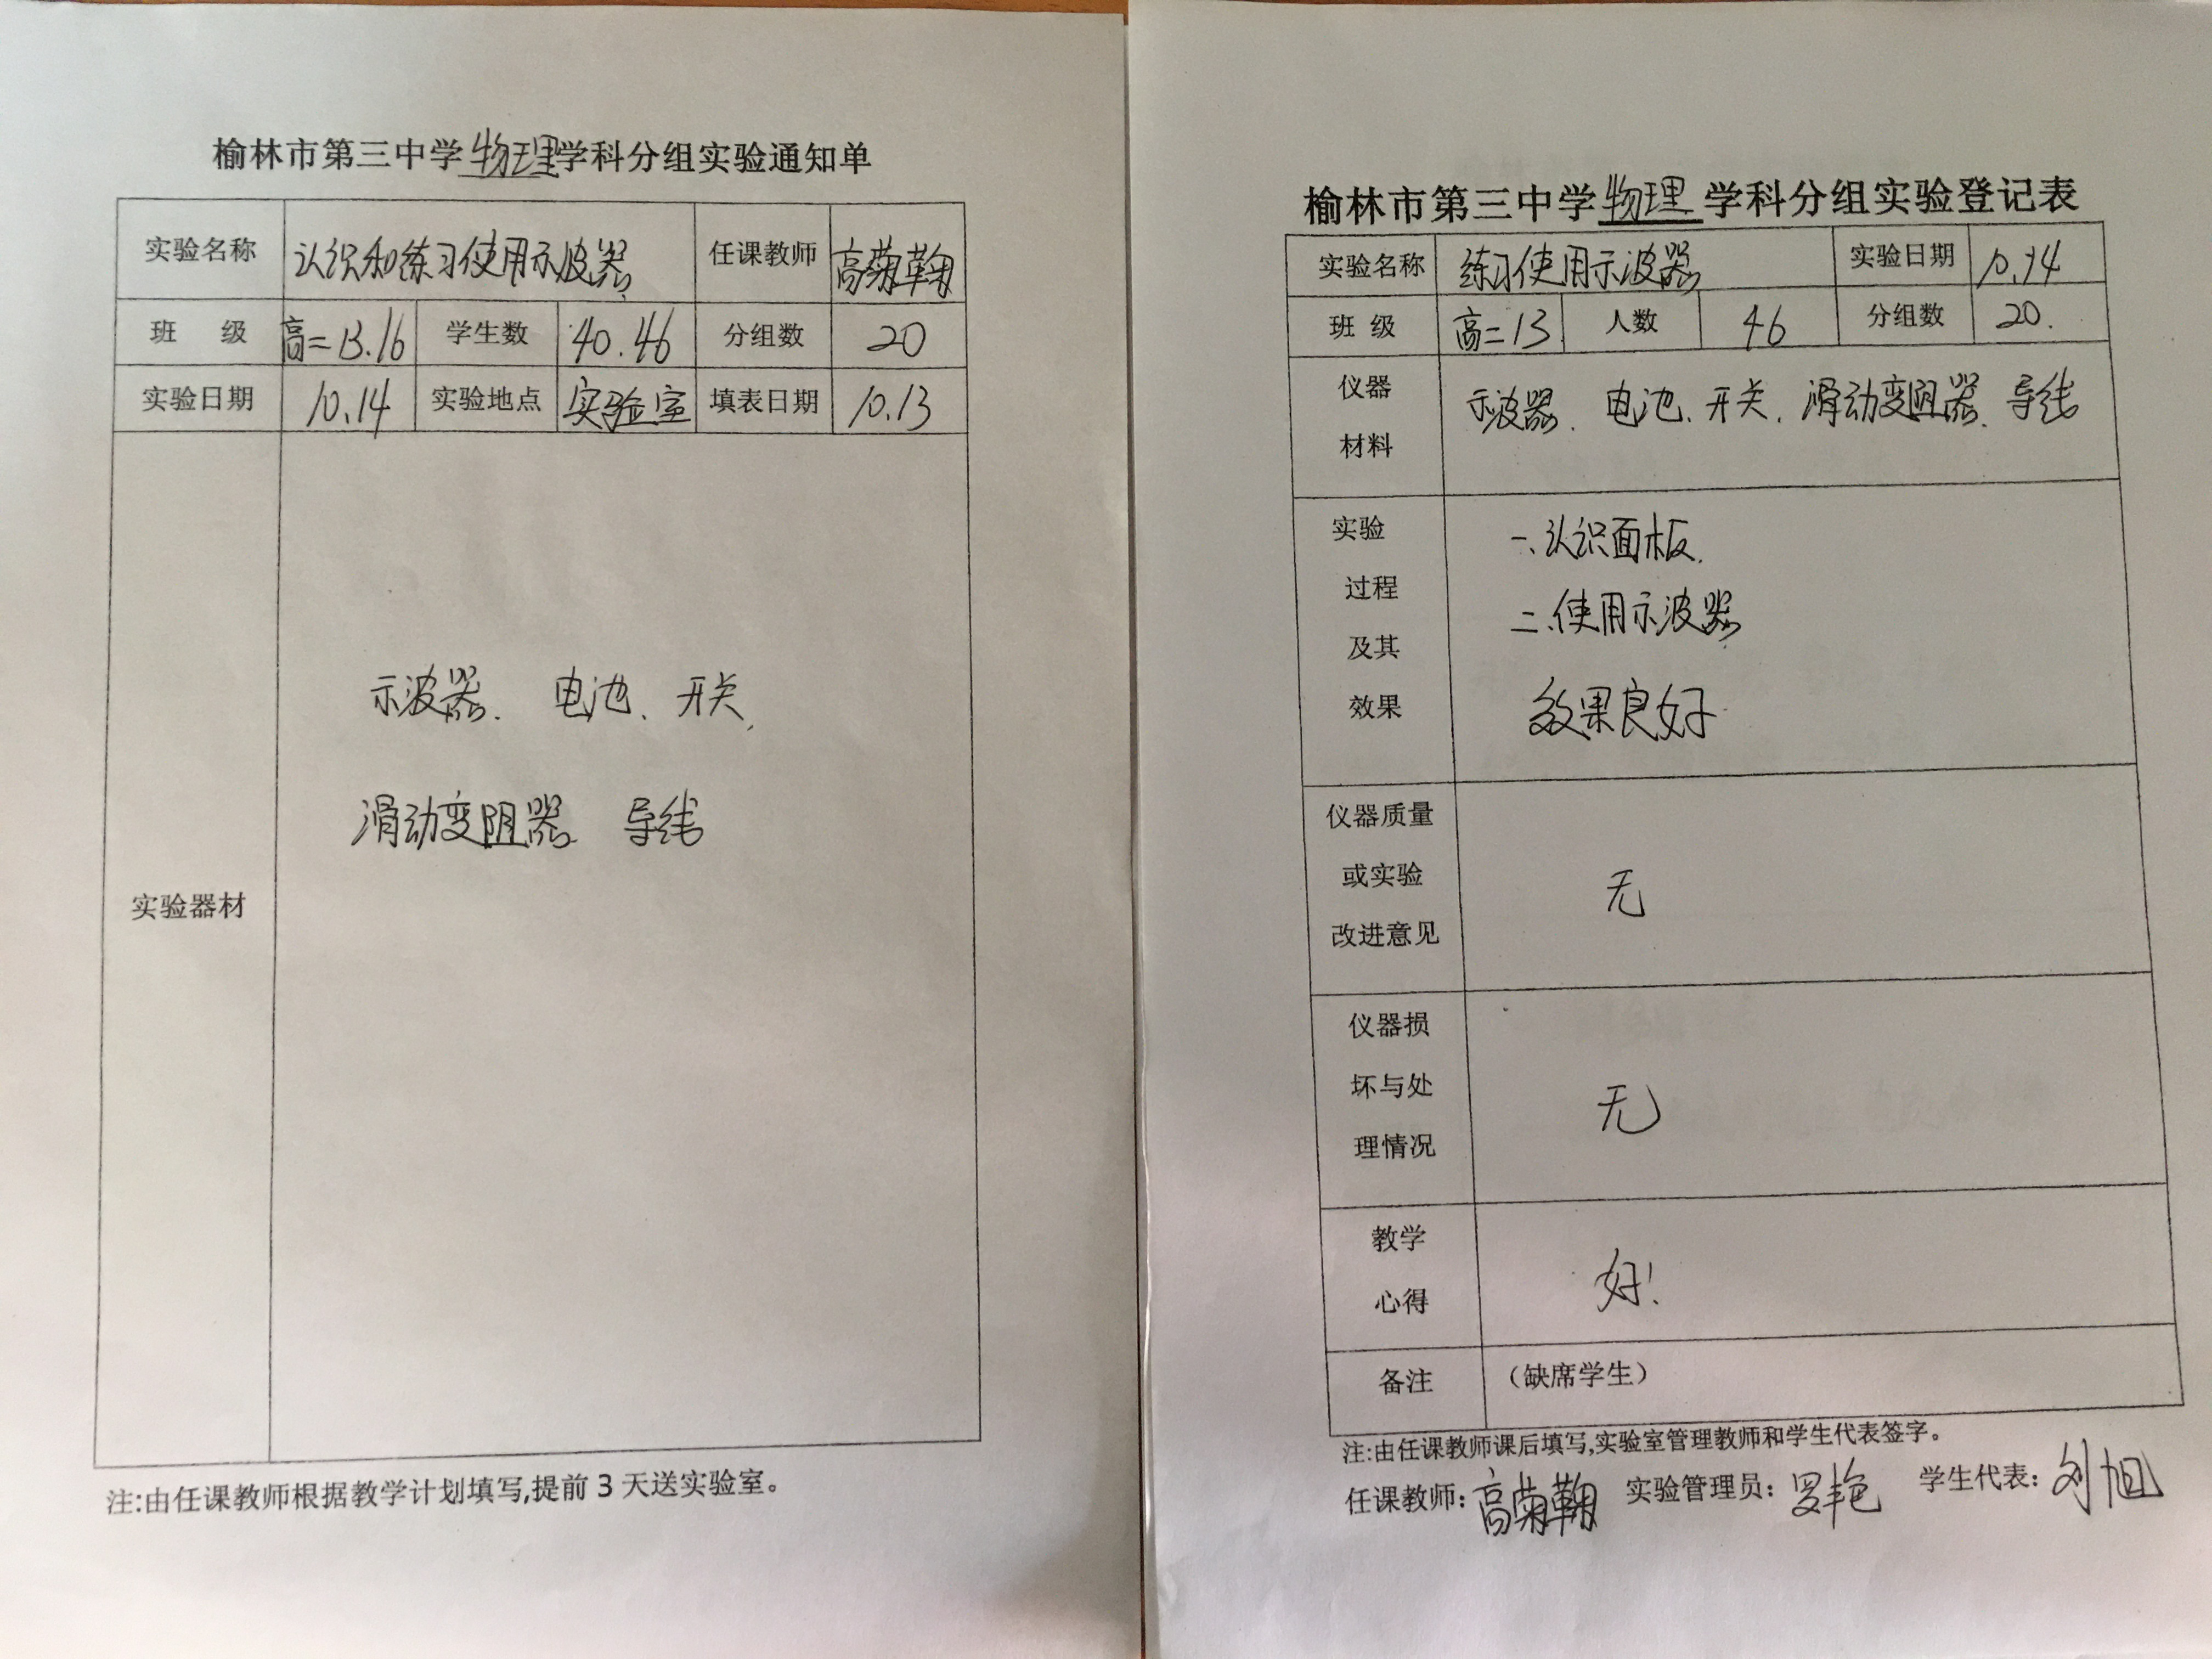 榆林市第三中学物理学科分组实验通知单
实验名称 认识和练习使用示波器 任课教师 高菊鞠
班 级 高二13.16 学生数 40.46 分组数 20
实验日期 10.14 实验地点 实验室 填表日期 10.13
示波器、 电池、开关、
滑动变阻器 导线
实验器材
注:由任课教师根据教学计划填写,提前 3 天送实验室。
榆林市第三中学物理学科分组实验登记表
实验名称 练习使用示波器 实验日期 10.14
班 级 高二13 人数 46 分组数 20.
仪器
材料
示波器、 电池、开关、滑动变阻器、导线
实验
过程
及其
效果
一、认识面板.
二、使用示波器
效果良好
仪器质量
或实验
改进意见
无
仪器损
坏与处
理情况
无
教学
心得
好!
备注 (缺席学生)
注:由任课教师课后填写,实验室管理教师和学生代表签字。
任课教师:高菊鞠 实验管理员:罗艳 学生代表:刘旭